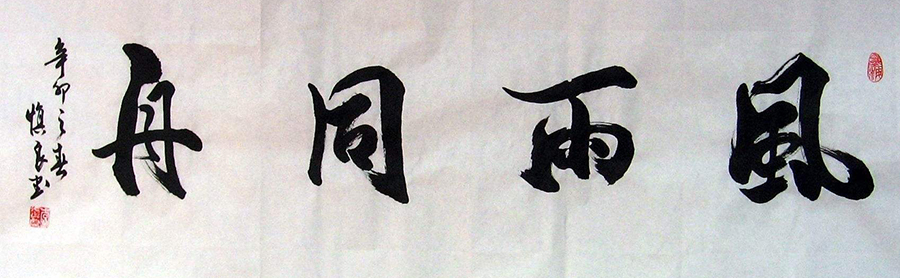 風雨同舟
辛卯之春
慎良書